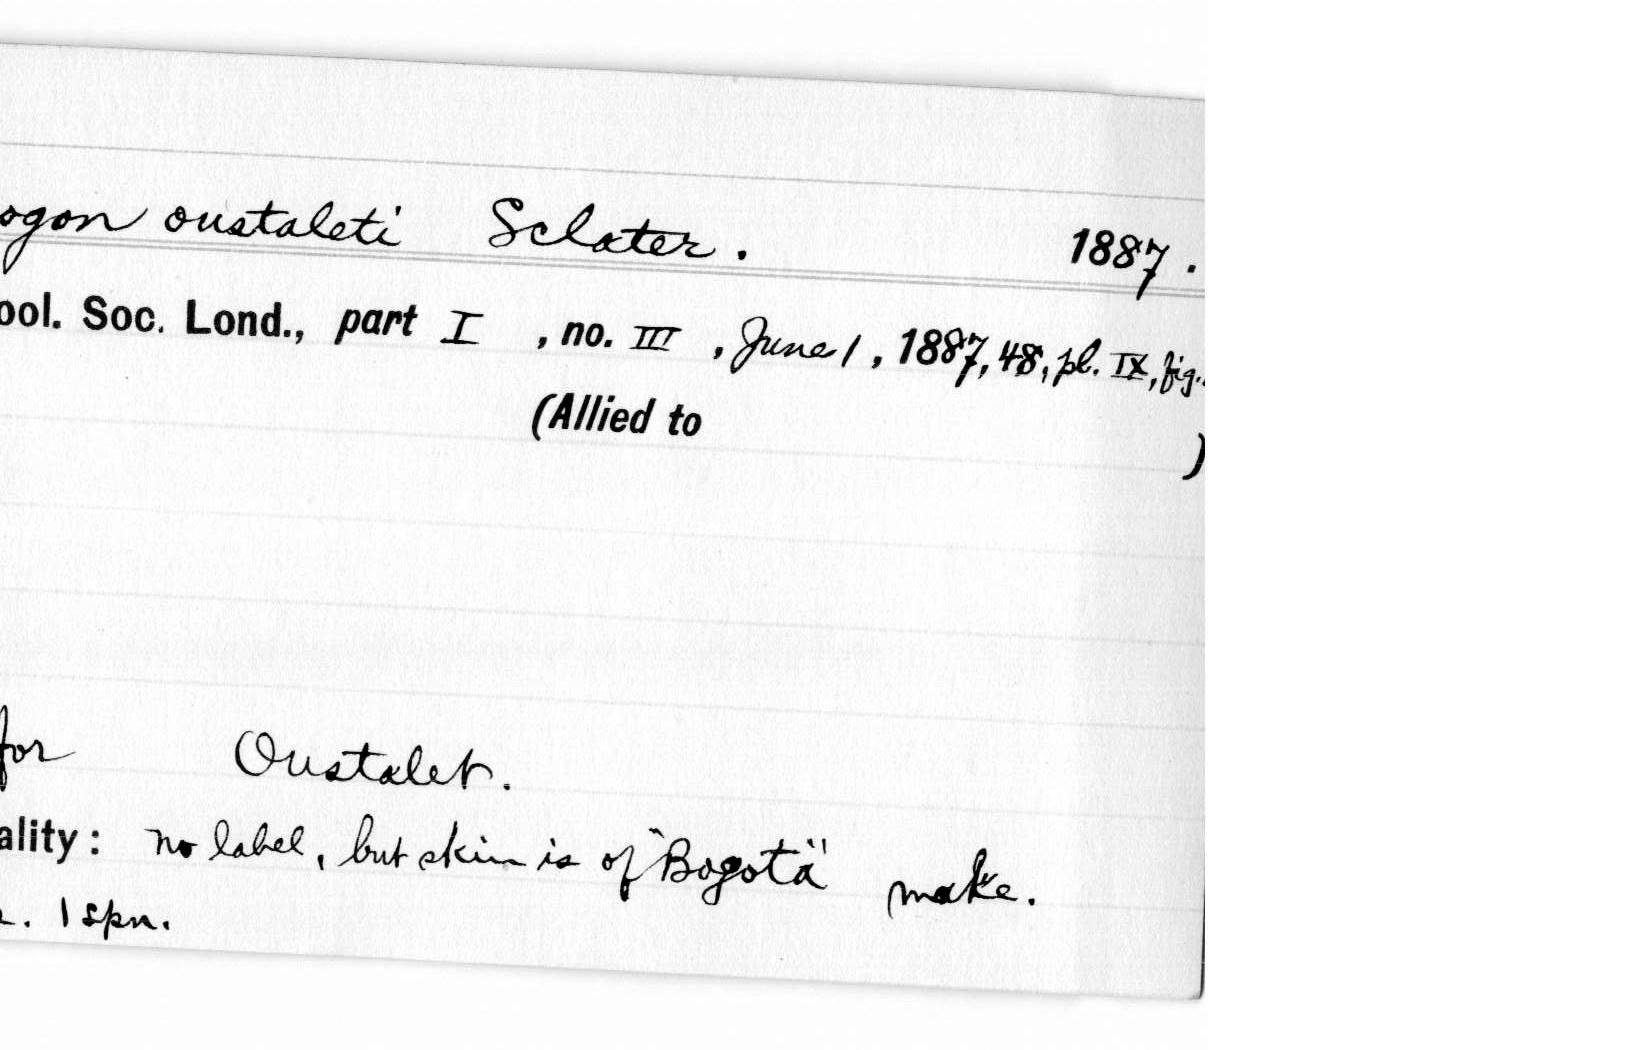 ogon oustaleti Sclater. 1887.
ool. Soc. Lond., part I , no. III , June 1, 1887, 48, pl. IX, fig.
(Allied to )
for Oustalet.
ality: no label, but skin is of "Bogotá" make.
. 1 spn.